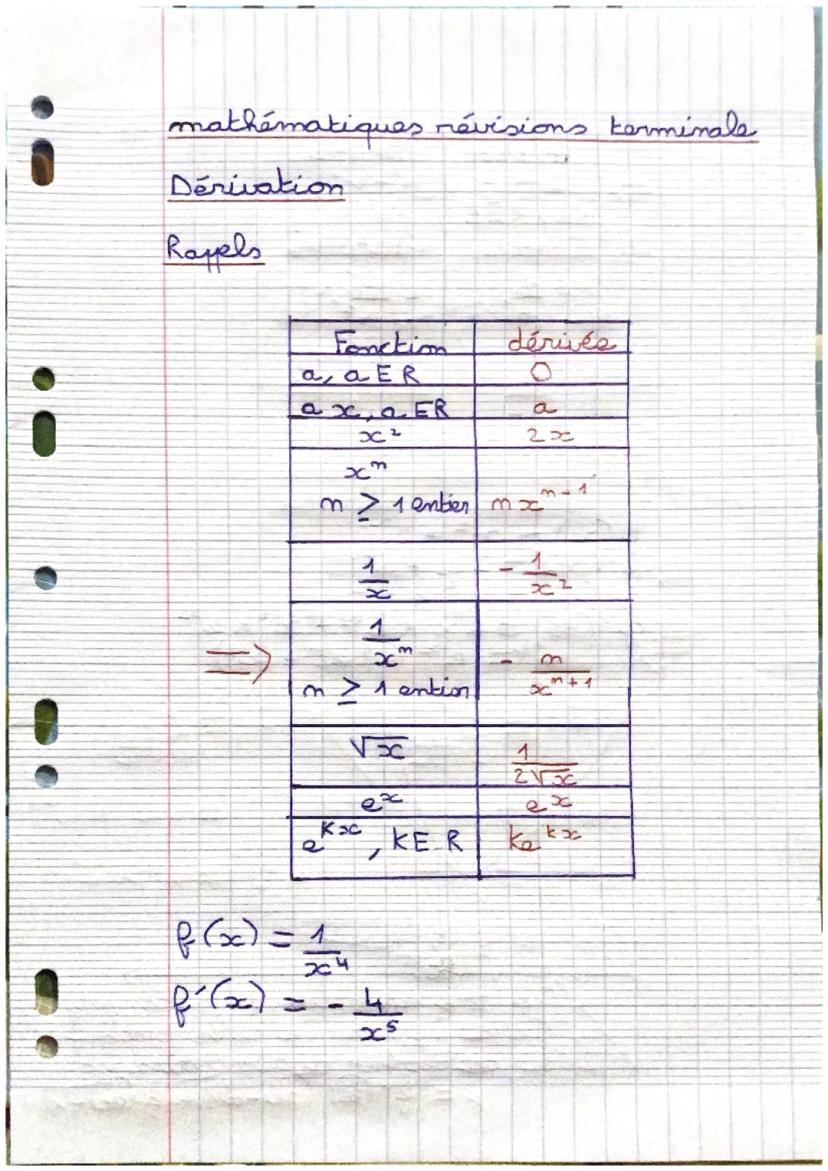 mathématiques révisions terminale
Dérivation
Rappels
Fonction dérivée
a, a E R 0
a x, a E R a
x² 2x
xⁿ
n ≥ 1 entier n xⁿ⁻¹
1/x - 1/x²
⇒ 1/xⁿ
n ≥ 1 entier - n/xⁿ⁺¹
√x 1/(2√x)
eˣ eˣ
e^{kx}, K E R ke^{kx}
f(x) = 1/x⁴
f'(x) = - 4/x⁵